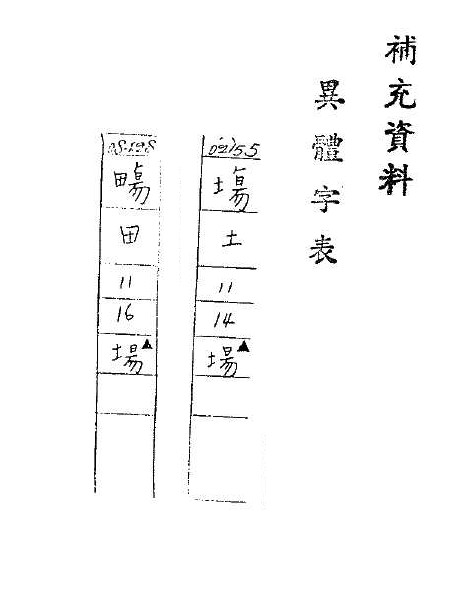 補充資料
異體字表
02155
塲
土
11
14
場▲
田
11
16
場▲